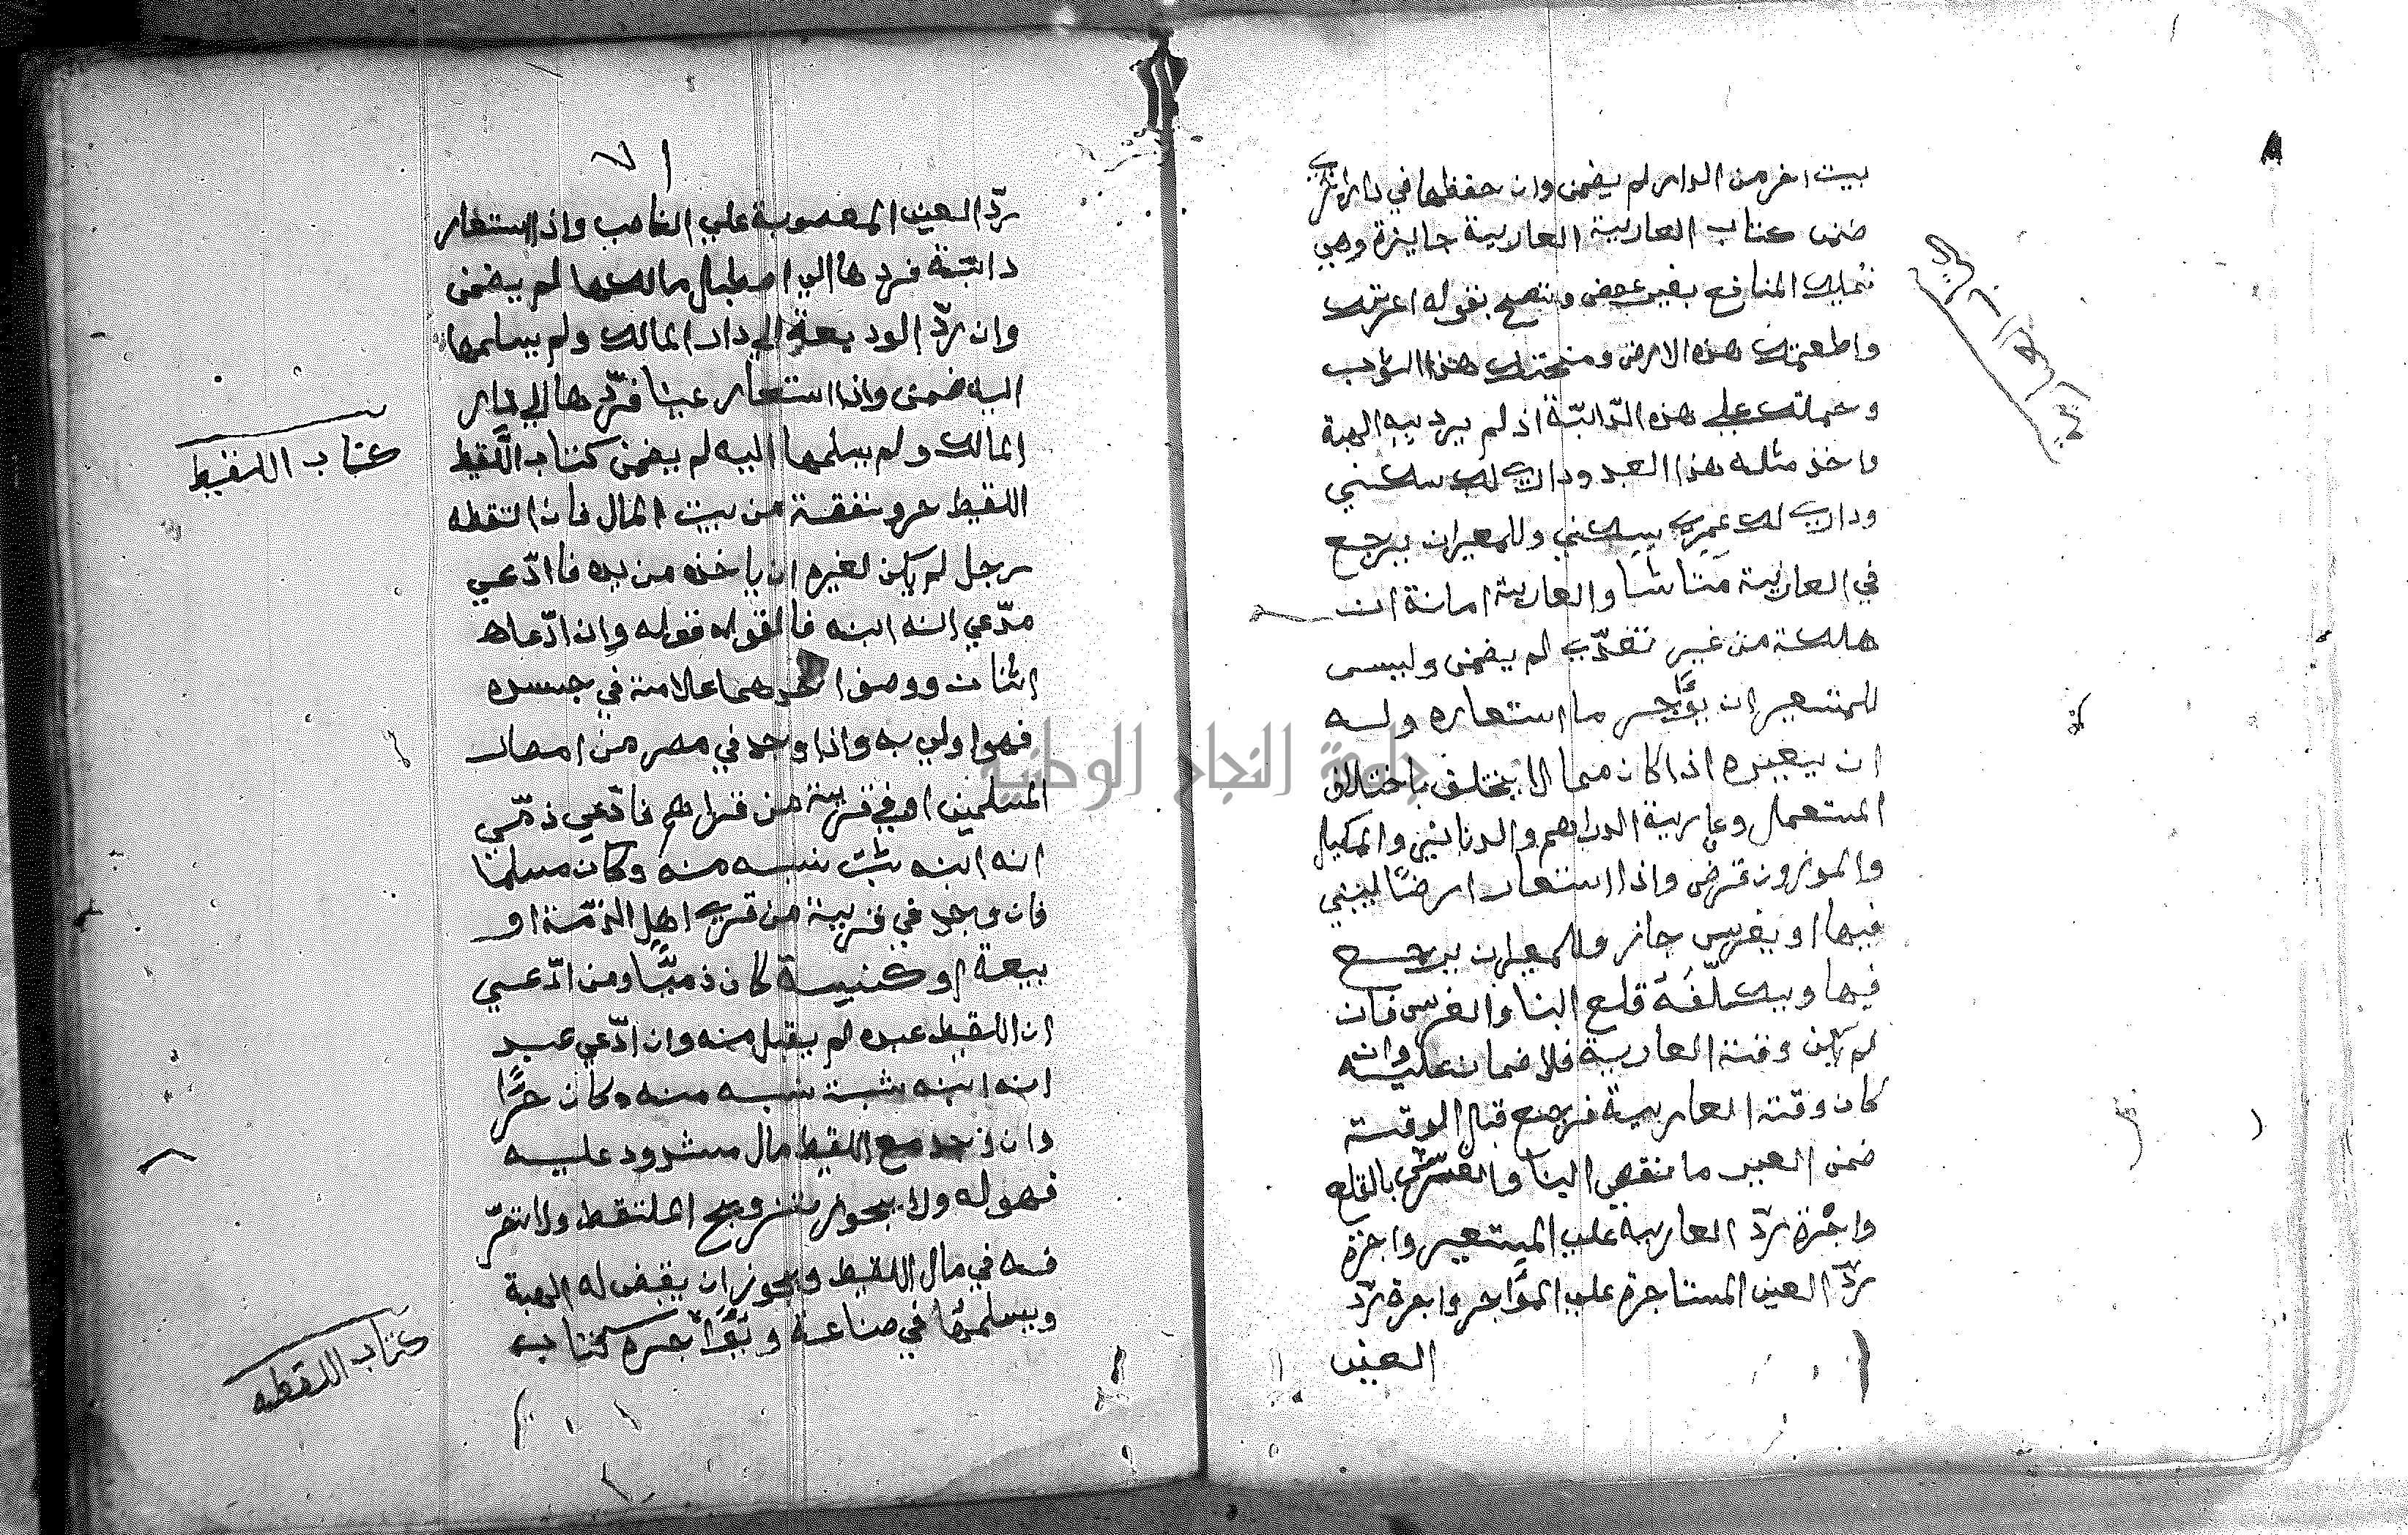 بيت اخر من الدار لم يضمن وان حفظها في دار اخري
ضمن كتاب العارية العارية جايزة وهي
تمليك المنافع بغير عوض وتصح بقوله اعرتك
واطعمتك هذه الارض ومنحتك هذا الثوب
وحملتك علي هذه الدّابّة اذ لم يرد به الهبة
واخذ مثله هذا العبد وداري لك سكني
وداري لك عمري سكني وللمعير ان يرجع
في العارية متا شا والعارية امانة ان
هلكة من غير تعدّي لم يضمن وليس
للمستعير ان يؤاجر ما استعاره وله
ان يعيره اذا كان مما لا يختلف باختلاف
المستعمل وعارية الدراهم والدنانير والمكيل
والموزون قرض واذا استعار ارضًا ليبني
فيها او يغرس جاز وللمعير ان يرجع
فيها ويكلّفه قلع البنا والغرس فان
لم يكن وقتة العارية فلا ضمان عليه وان
كان وقتة العارية فرجع قبل الوقت
ضمن المعير ما نقص البنا والغرس بالقلع
واجرة ردّ العارية علي المستعير واجرة
ردّ العين المستاجرة علي المؤاجر واجرة ردّ
العين
كتاب العارية
ردّ العين المغصوبة علي الغاصب واذا استعار
دابّة فردها الي اصطبل مالكها لم يضمن
وان ردّ الوديعة الي دار المالك ولم يسلمها
اليه ضمن واذا استعار عينا فردّها الي دار
المالك ولم يسلمها اليه لم يضمن كتاب اللّقيط
اللقيط حر ونفقة من بيت المال فان التقطه
رجل لم يكن لغيره ان ياخذه من يده فا ادّعي
مدّعي انه ابنه فالقول قوله وان ادّعاه
اثنان ووصف احدهما علامة في جسده
فهوا ولي به واذا وجد في مصر من امصار
المسلمين او في قرية من قراهم فادّعي ذمّي
انه ابنه ثبت نسبه منه وكان مسلما
فان وجد في قرية من قري اهل الذمّة او
بيعة او كنيسة كان ذميًّا ومن ادّعي
ان اللقيط عبده لم يقبل منه وان ادّعي عبد
انه ابنه ثبت نسبه منه وكان حرًّا
وان وجد مع اللقيط مال مشدود عليه
فهو له ولا يجوز تزويج الملتقط ولا تصرّ
فه في مال اللقيط ويجوز ان يقبض له الهبة
ويسلمها في صناعة ويؤاجره كتاب
كتاب اللقيط
كتاب اللقطه
جامعة النجاح الوطنية